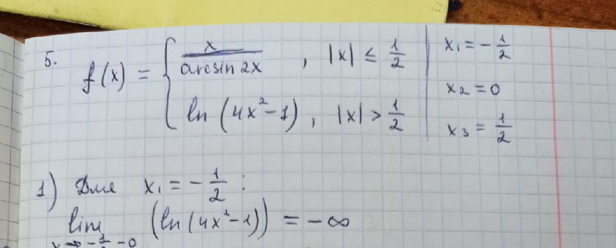 5.
f(x) = { x / arcsin 2x , |x| ≤ 1/2
ln (4x² - 1) , |x| > 1/2
x₁ = - 1/2
x₂ = 0
x₃ = 1/2
1) Для x₁ = - 1/2 :
lim (ln (4x² - 1)) = - ∞
x → - 1/2 - 0